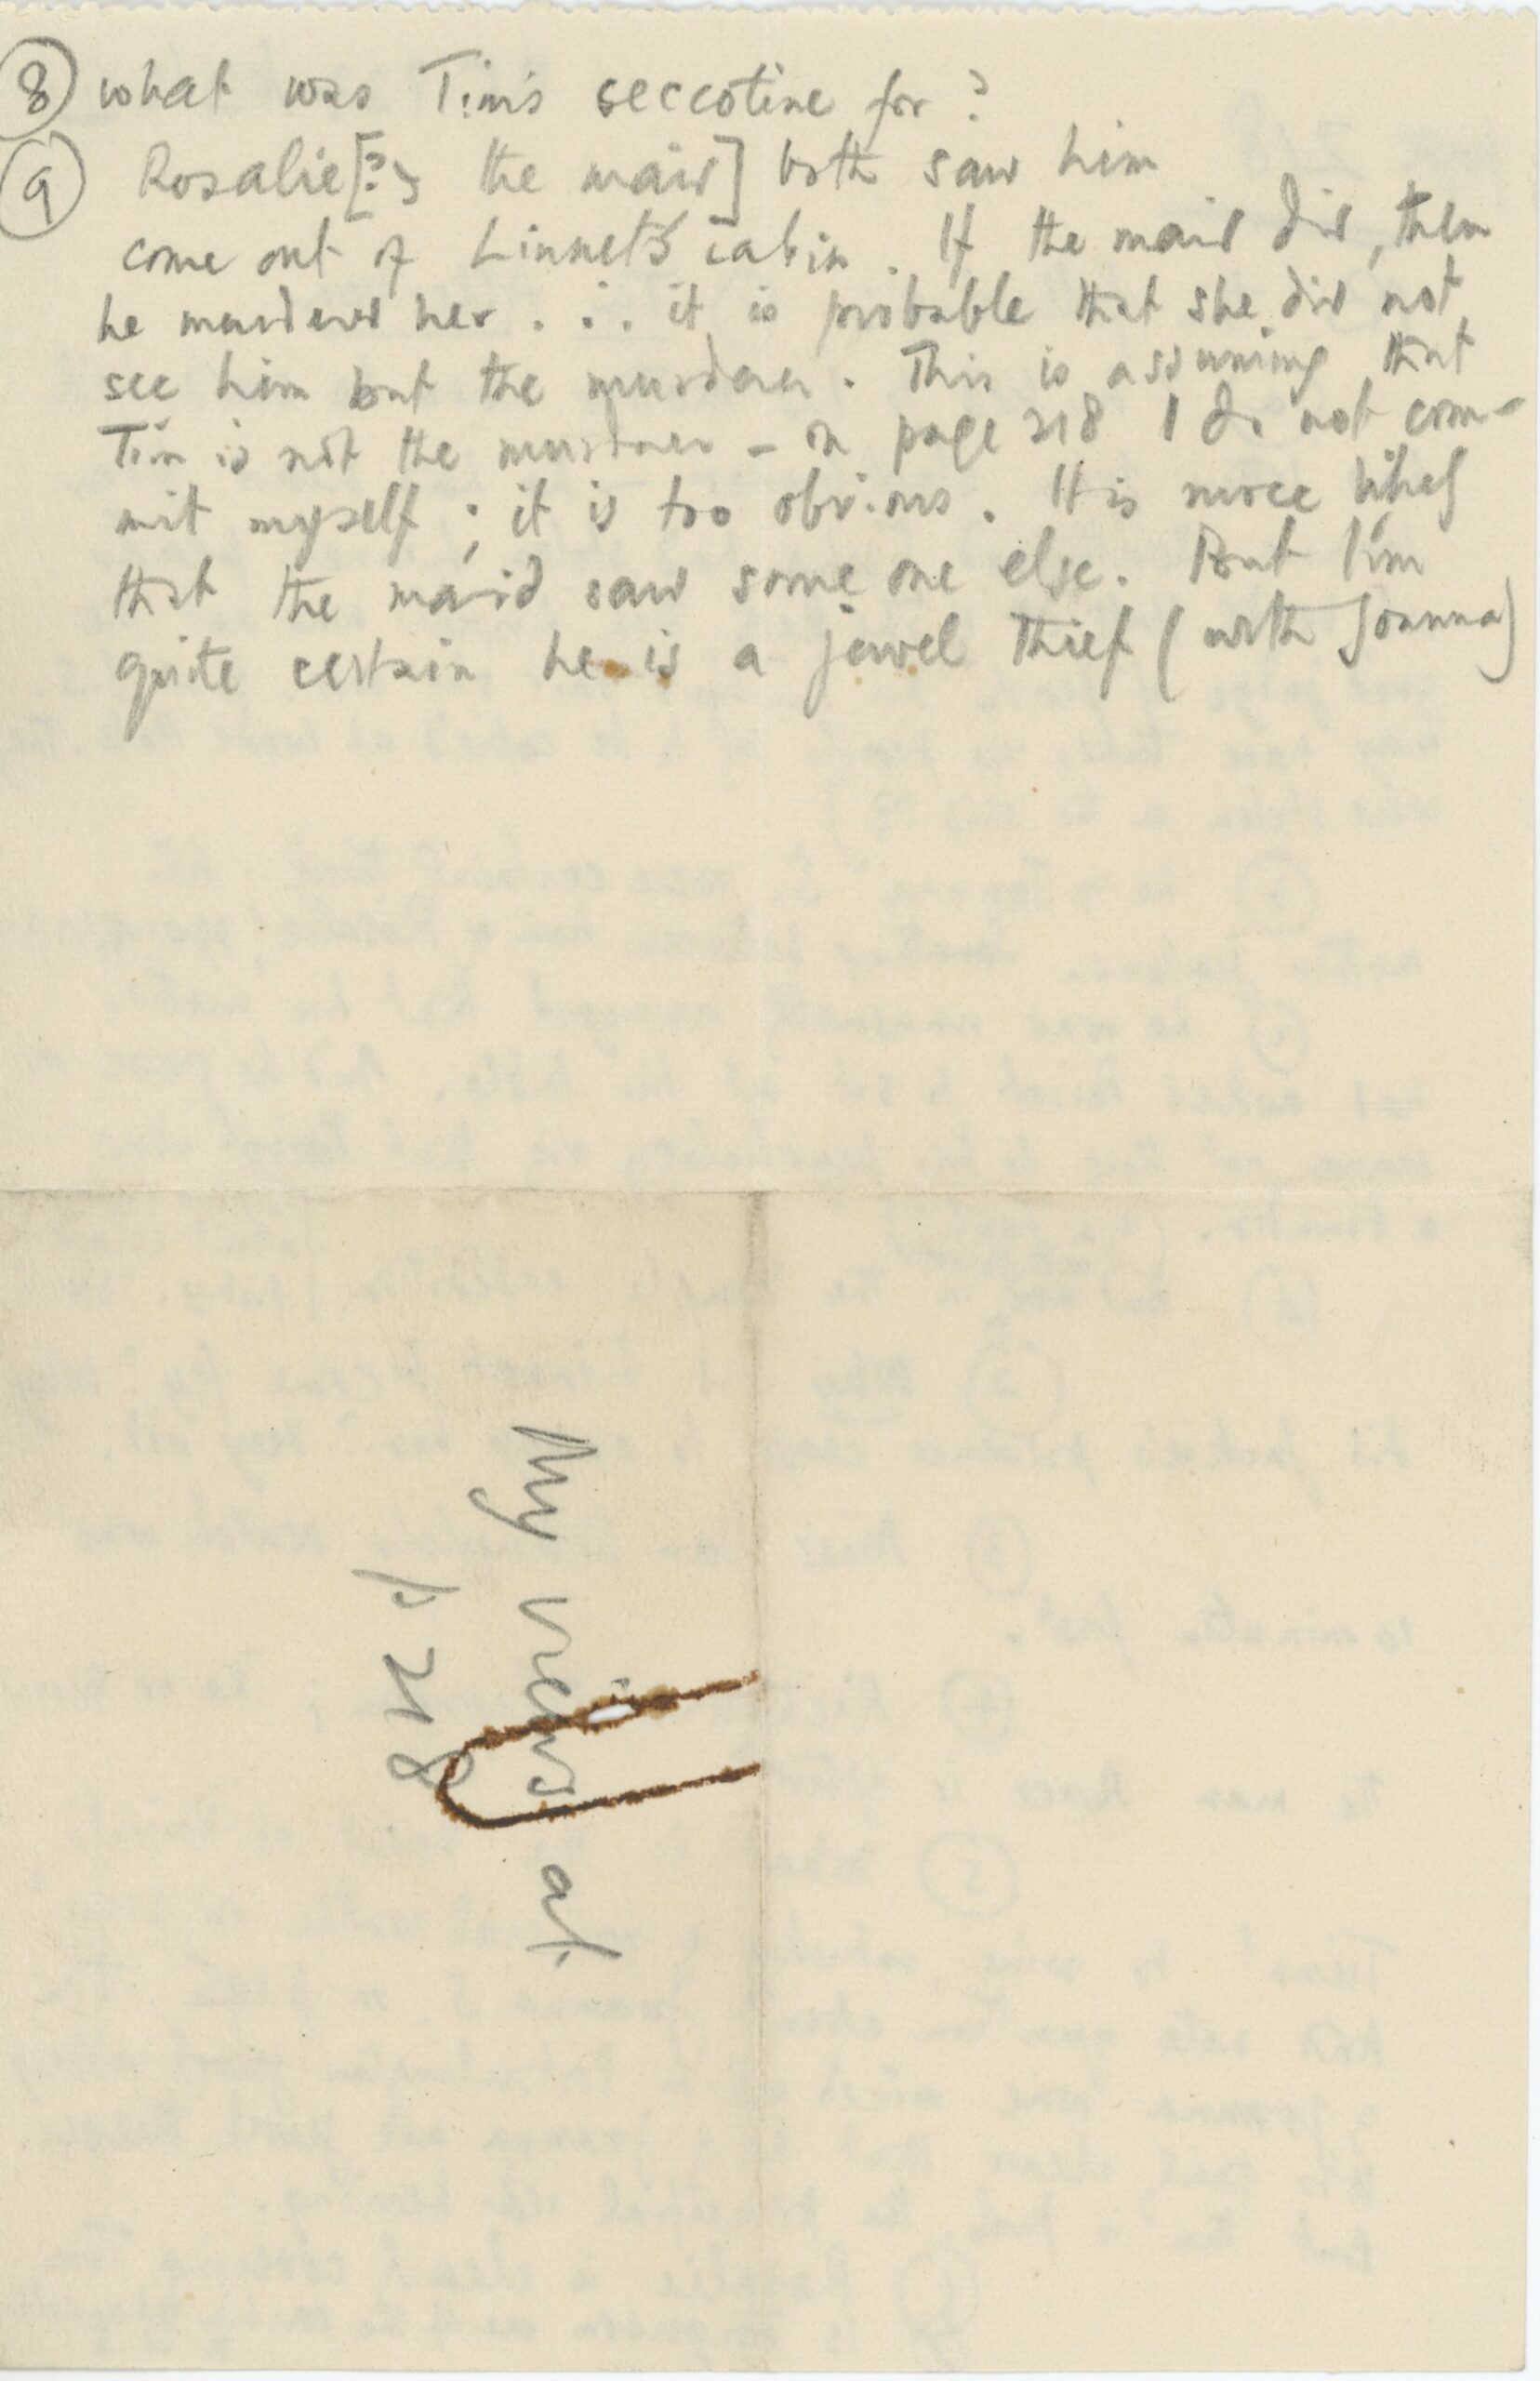 ⑧ what was Tim's seccotine for?
⑨ Rosalie [? & the maid] both saw him
come out of Linnet's cabin. If the maid did, then
he murdered her. ∴ it is probable that she did not
see him but the murderer. This is assuming that
Tim is not the murderer - on page 218 I do not com-
mit myself; it is too obvious. It is more likely
that the maid saw some one else. But I'm
quite certain he is a jewel thief (with Joanna)
My views at
p. 218